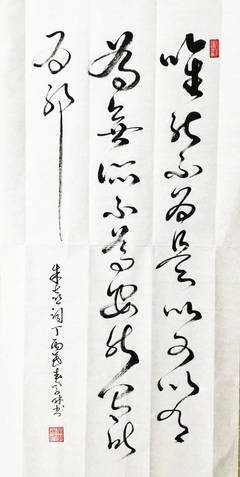 唯能不為是以可以有
為無所不為安能有所
為耶
朱熹 丁酉 書